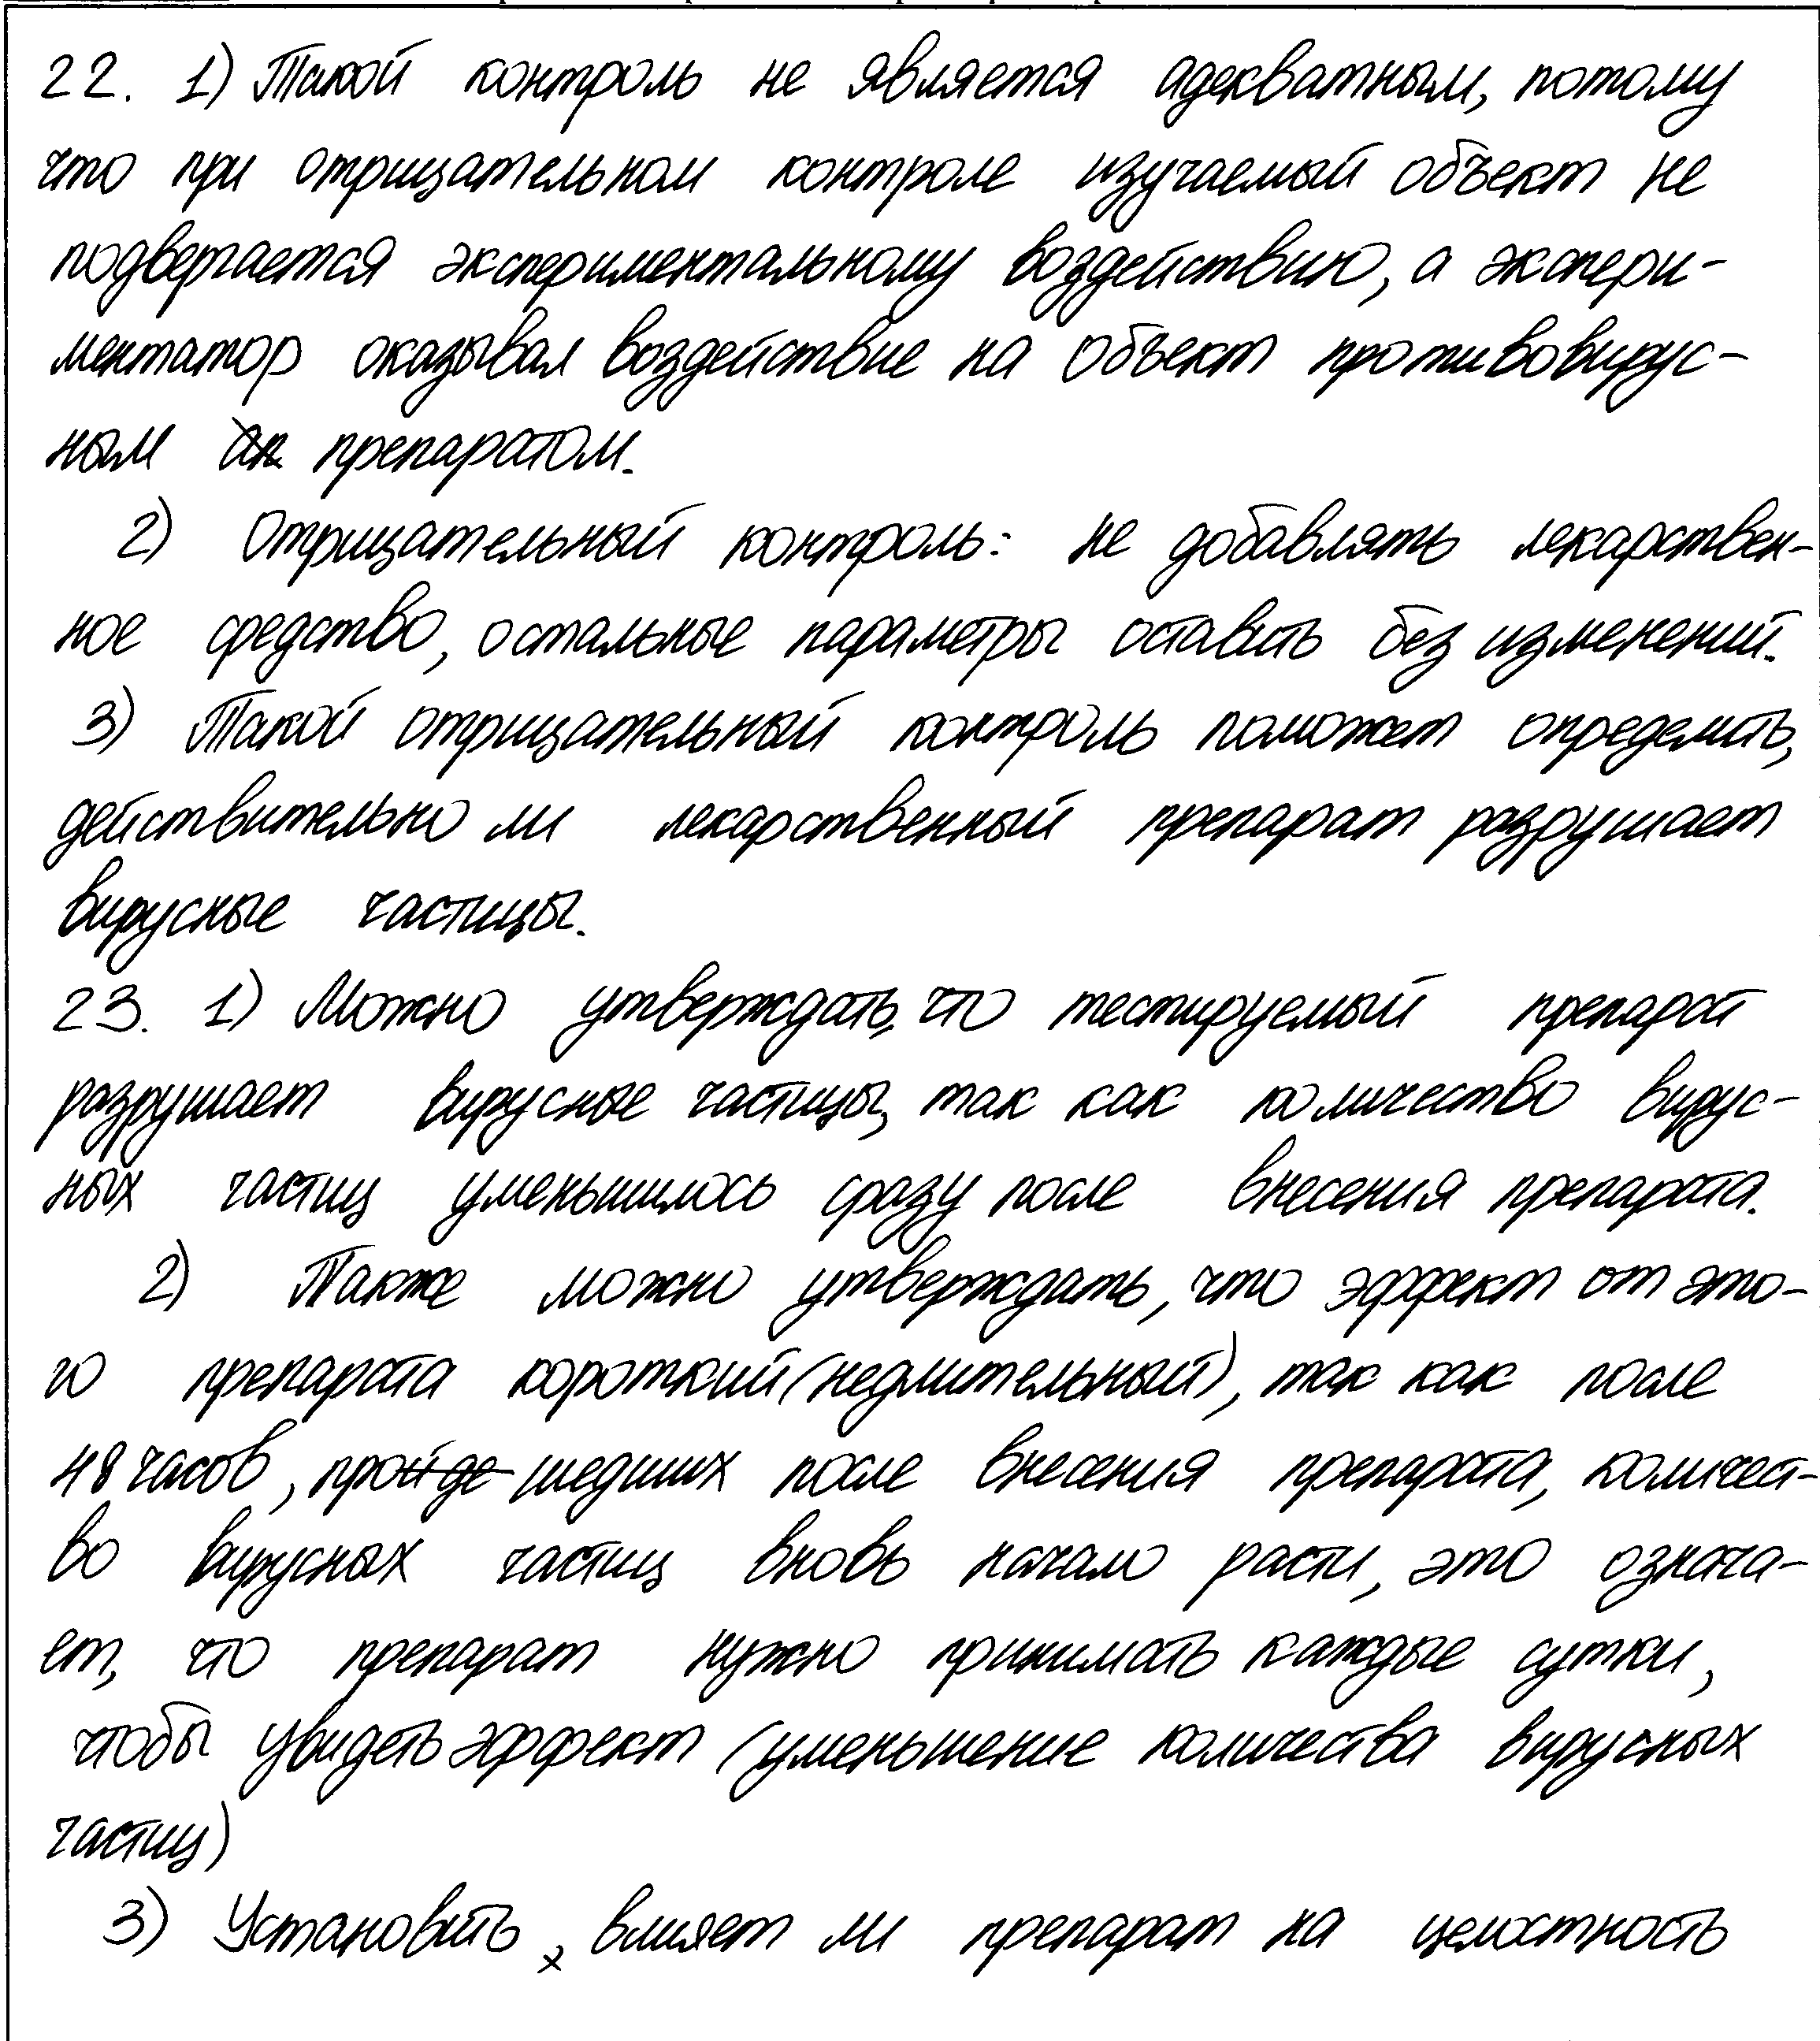 22. 1) Такой контроль не является адекватным, потому
что при отрицательном контроле изучаемый объект не
подвергается экспериментальному воздействию, а экспери-
ментатор оказывал воздействие на объект противовирус-
ным препаратом.
2) Отрицательный контроль: не добавлять лекарствен-
ное средство, остальные параметры оставить без изменений.
3) Такой отрицательный контроль поможет определить,
действительно ли лекарственный препарат разрушает
вирусные частицы.
23. 1) Можно утверждать, что тестируемый препарат
разрушает вирусные частицы, так как количество вирус-
ных частиц уменьшилось сразу после внесения препарата.
2) Также можно утверждать, что эффект от это-
го препарата короткий (недлительный), так как после
48 часов, прошедших после внесения препарата, количест-
во вирусных частиц вновь начало расти, это означа-
ет, что препарат нужно принимать каждые сутки,
чтобы увидеть эффект (уменьшение количества вирусных
частиц)
3) Установить, влияет ли препарат на целостность